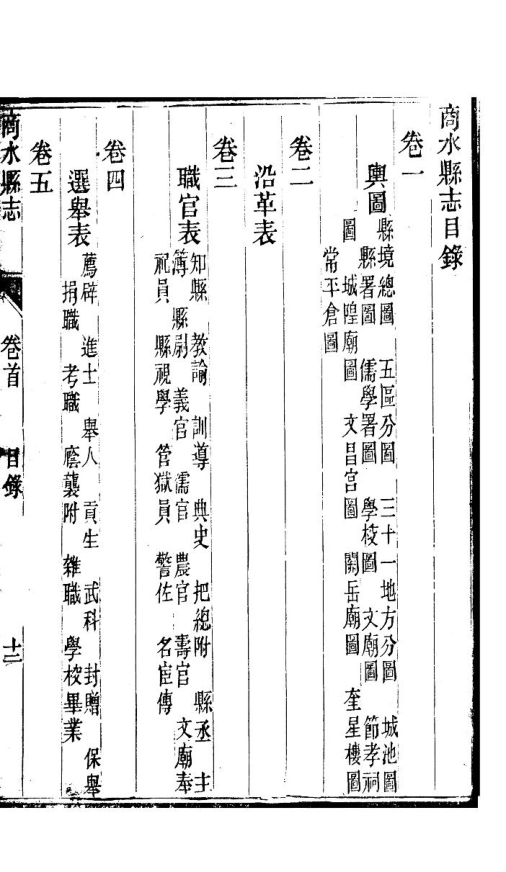 商水縣志目錄
卷一
輿圖
縣境總圖 五區分圖 三十一地方分圖 城池圖
縣署圖 儒學署圖 學校圖 文廟圖 節孝祠
圖 城隍廟圖 文昌宮圖 關岳廟圖 奎星樓圖
常平倉圖
卷二
沿革表
卷三
職官表
知縣 教諭 訓導 典史 把總附 縣丞 主
簿 縣尉 義官 儒官 農官 壽官 文廟奉
祀員 縣視學 管獄員 警佐 名宦傳
卷四
選舉表
薦辟 進士 舉人 貢生 武科 封贈 保舉
捐職 考職 廕襲附 雜職 學校畢業
卷五
商水縣志
卷首 目錄
十二